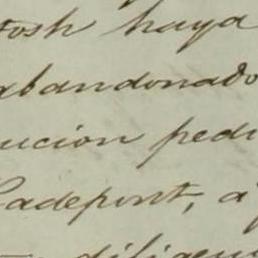 tosh haya
abandonado
ucion pedi
Cadepont, a
diligen